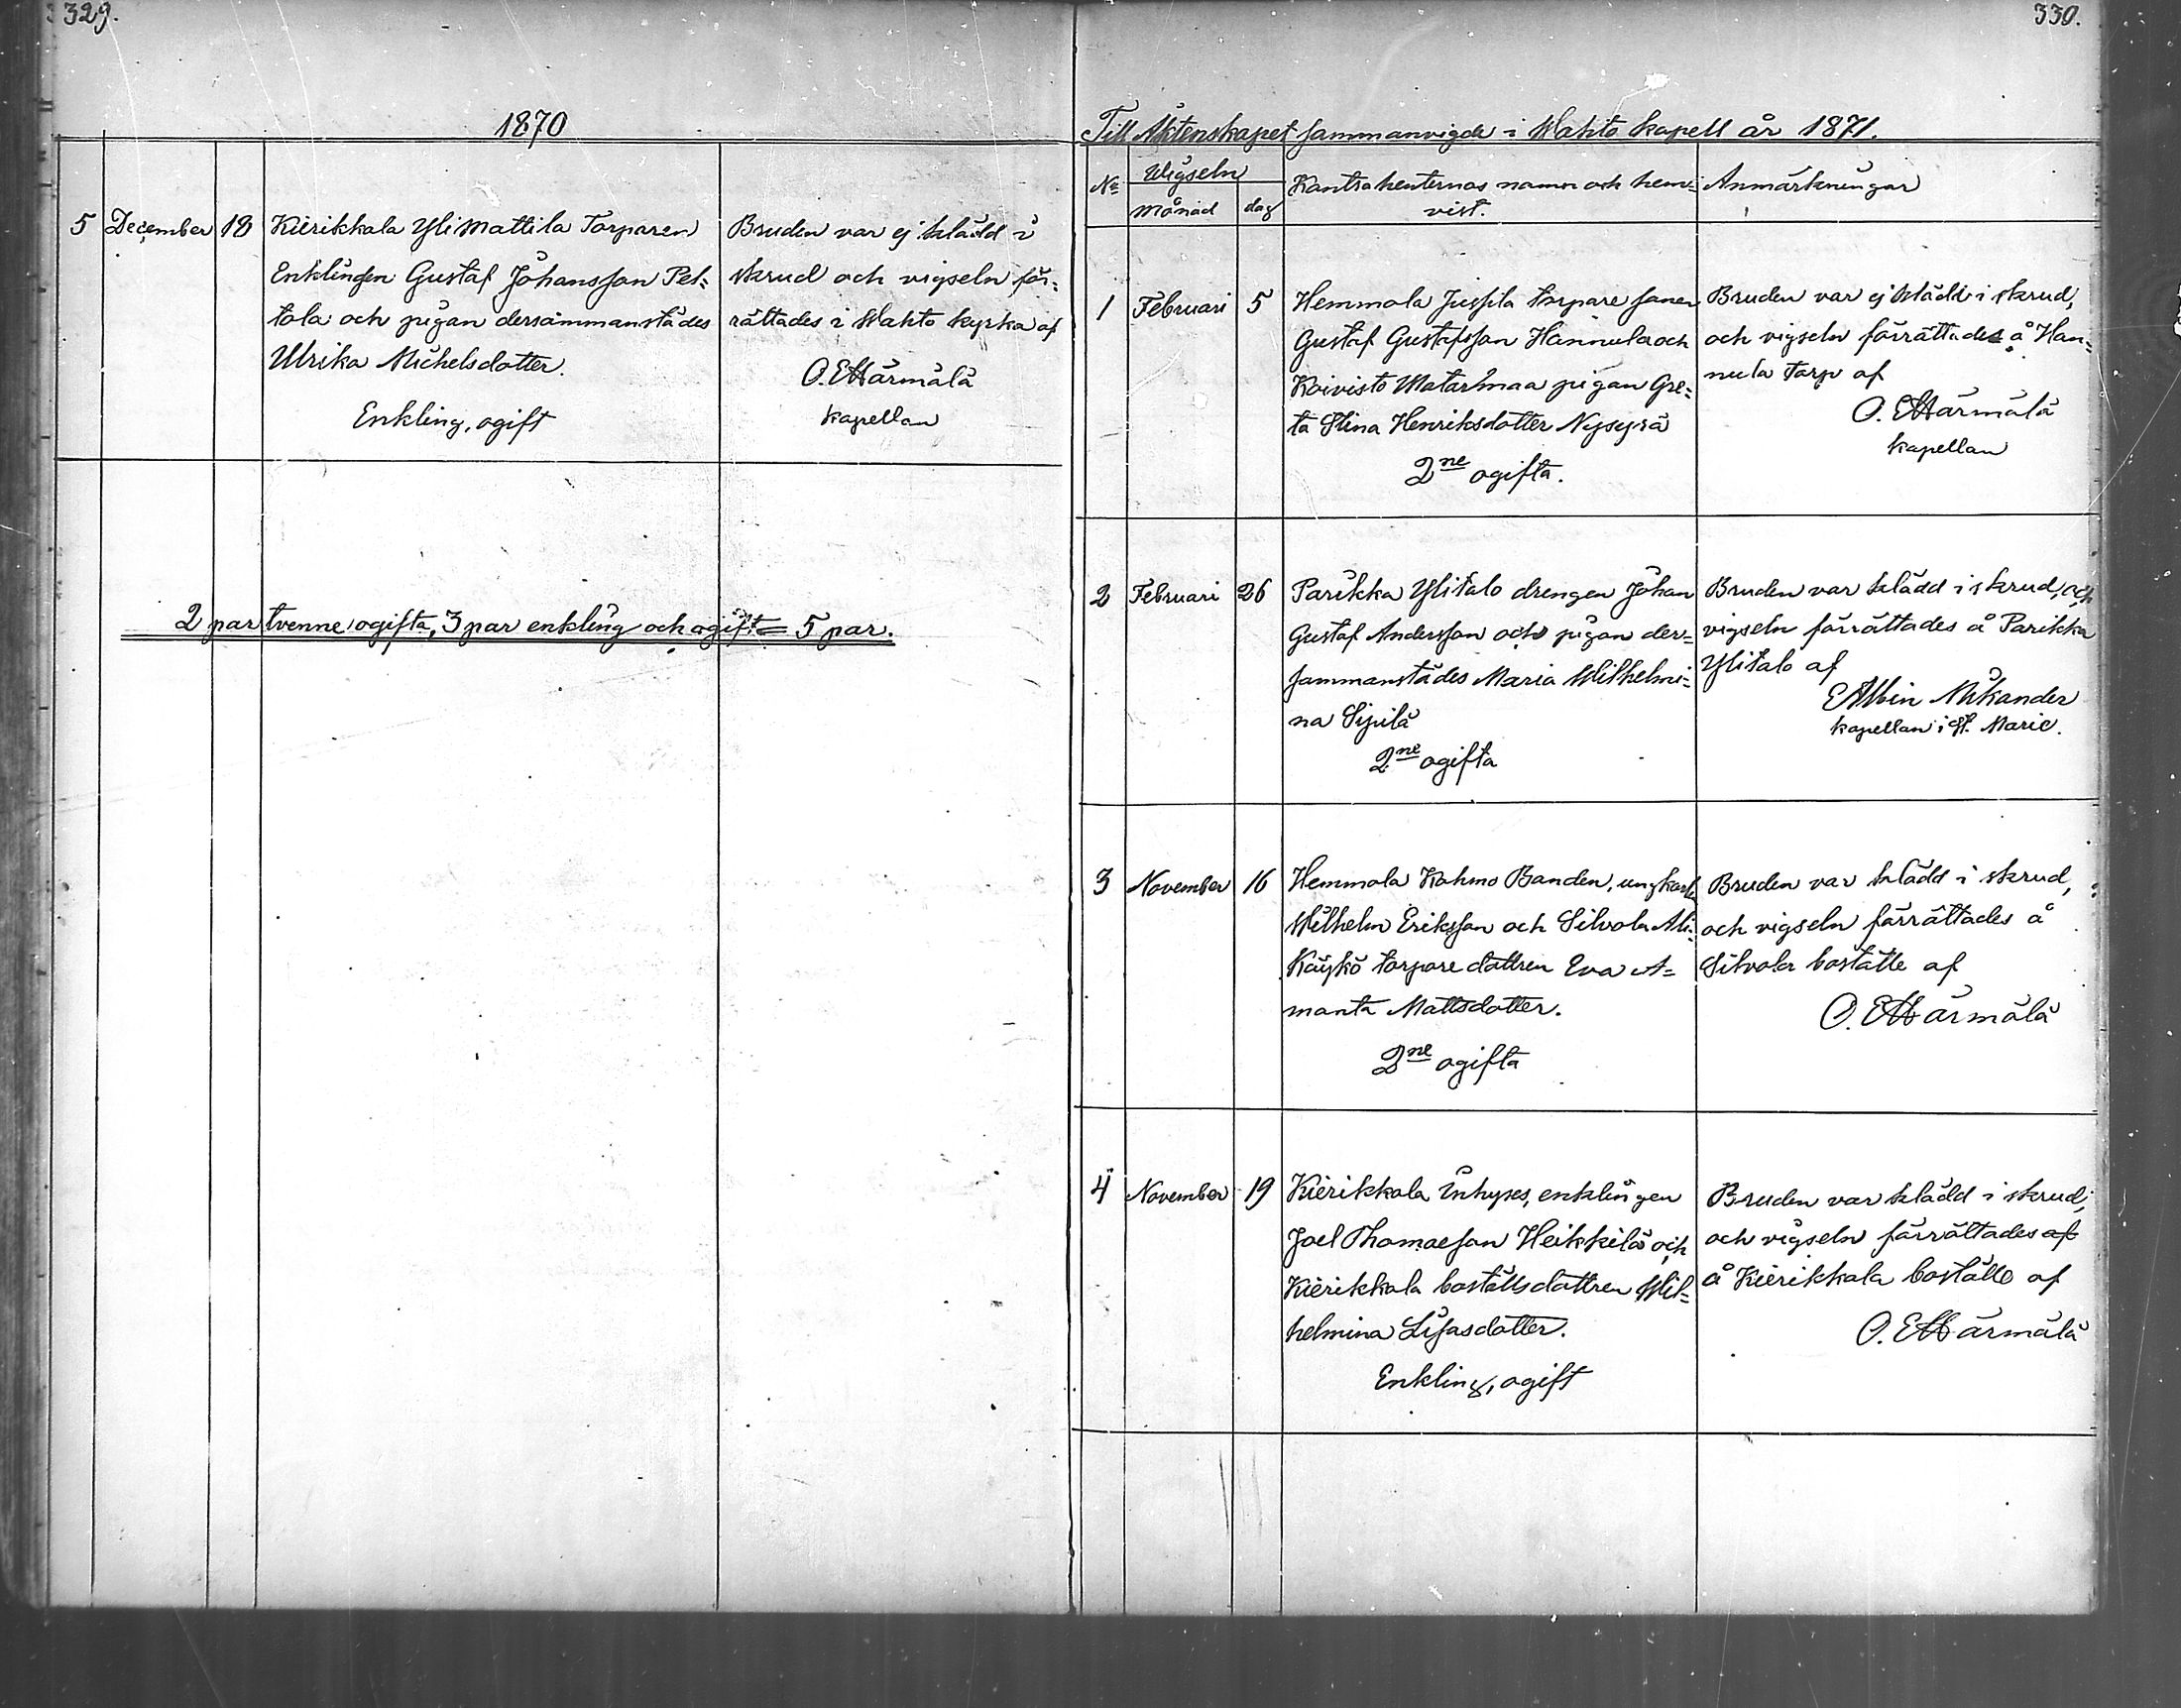 329.
1870
5 December 18 Kierikkala Ylimattila Torparen
Enklingen Gustaf Johansson Pel=
tola och pigan dersammanstädes
Ulrika Michelsdotter.
Enkling, ogift
Bruden var ej klädd i
skrud och vigseln för=
rättades i Wahto kyrka af
O. E Härmälä
kapellan
2 par tvenne ogifta, 3 par enkling och ogift = 5 par.
330.
Till Äktenskapet sammanvigda i Wahto kapell år 1871.
No Wigseln Kontrahenternas namn och hem= Anmärkningar
månad dag vist.
1 Februari 5 Hemmola Jussila torpare sonen
Gustaf Gustafsson Hannula och
Koivisto Matarmaa pigan Gre=
ta Stina Henriksdotter Nysyrä
2ne ogifta.
Bruden var ej klädd i skrud,
och vigseln förrättades å Han=
nula Torp af
O. E Härmälä
kapellan
2 Februari 26 Parikka Ylitalo drengen Johan
Gustaf Andersson och pigan der=
sammanstädes Maria Wilhelmi=
na Sipilä
2ne ogifta
Bruden var klädd i skrud, och
vigseln förrättades å Parikka
Ylitalo af
E Albin Nikander
kapellan i St. Marie.
3 November 16 Hemmola Kahmo Banden, ungkarl
Wilhelm Eriksson och Silvola Ali=
Käykö torpare dottren Eva A=
manta Mattsdotter.
2ne ogifta
Bruden var klädd i skrud,
och vigseln förrättades å
Silvola boställe af
O. E Härmälä
4 November 19 Kierikkala inhyses, enklingen
Joel Thomasson Heikkilä och
Kierikkala boställsdottren Wil=
helmina Lisasdotter.
Enkling, ogift
Bruden var klädd i skrud,
och vigseln förrättades af
å Kierikkala boställe af
O. E Härmälä